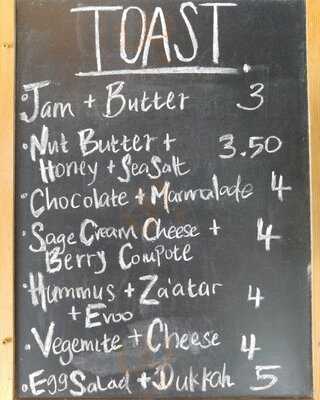 TOAST.
• Jam + Butter 3
• Nut Butter + 3.50
Honey + Sea Salt
• Chocolate + Marmalade 4
• Sage Cream Cheese + 4
Berry Compote
• Hummus + Za'atar 4
+ Evoo
• Vegemite + Cheese 4
• Egg Salad + Dukkah 5